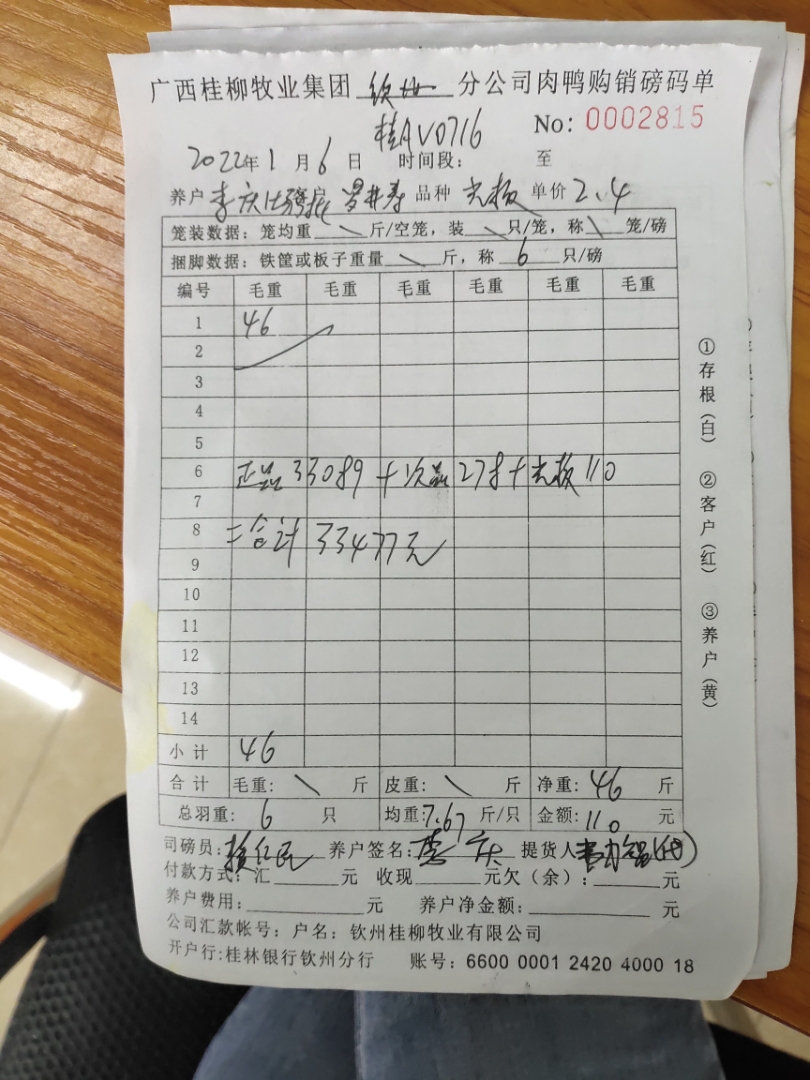 广西桂柳牧业集团 钦州 分公司肉鸭购销磅码单
桂AV0716 No: 0002815
2022年1月6日 时间段: 至
养户 李庆 品种 光板 单价 2.4
笼装数据: 笼均重 \ 斤/空笼, 装 \ 只/笼, 称 \ 笼/磅
捆脚数据: 铁筐或板子重量 \ 斤, 称 6 只/磅
编号 毛重 毛重 毛重 毛重 毛重 毛重
1 46
2
3
4
5
6 正品33089+次品278+光板110
7
8 =合计33477元
9
10
11
12
13
14
小计 46
合计 毛重: \ 斤 皮重: \ 斤 净重: 46 斤
总羽重: 6 只 均重: 7.67 斤/只 金额: 110 元
司磅员: 养户签名: 提货人 (代)
付款方式: 汇 元 收现 元欠(余): 元
养户费用: 元 养户净金额: 元
公司汇款帐号: 户名: 钦州桂柳牧业有限公司
开户行:桂林银行钦州分行 账号: 6600 0001 2420 4000 18
①存根(白) ②客户(红) ③养户(黄)